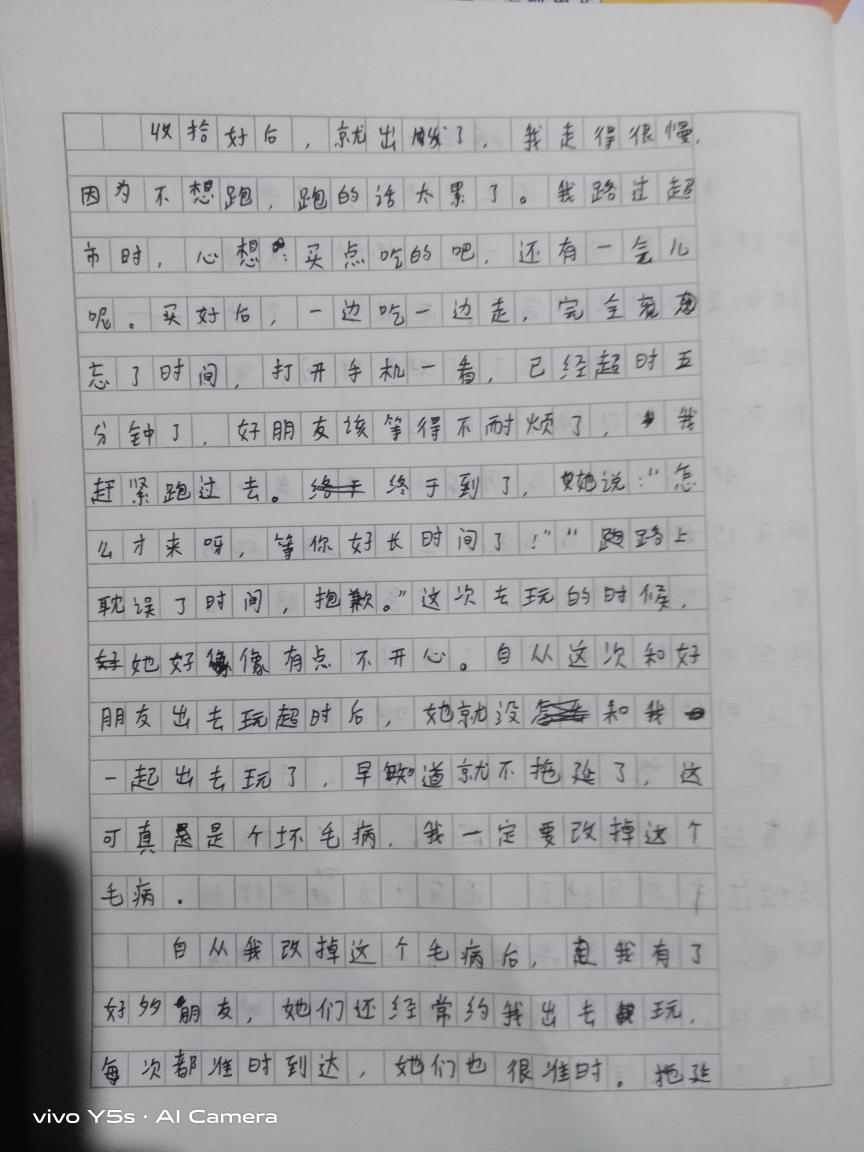 收拾好后，就出发了，我走得很慢，
因为不想跑，跑的话太累了。我路过超
市时，心想：买点吃的吧，还有一会儿
呢。买好后，一边吃一边走，完全忽
忘了时间，打开手机一看，已经超时五
分钟了，好朋友该等得不耐烦了，我
赶紧跑过去。终于到了，她说：“怎
么才来呀，等你好长时间了！”“跑路上
耽误了时间，抱歉。”这次去玩的时候，
她好像有点不开心。自从这次和好
朋友出去玩超时后，她就没和我
一起出去玩了，早知道就不拖延了，这
可真是个坏毛病，我一定要改掉这个
毛病．
自从我改掉这个毛病后，我有了
好多朋友，她们还经常约我出去玩，
每次都准时到达，她们也很准时。拖延
vivo Y5s · AI Camera